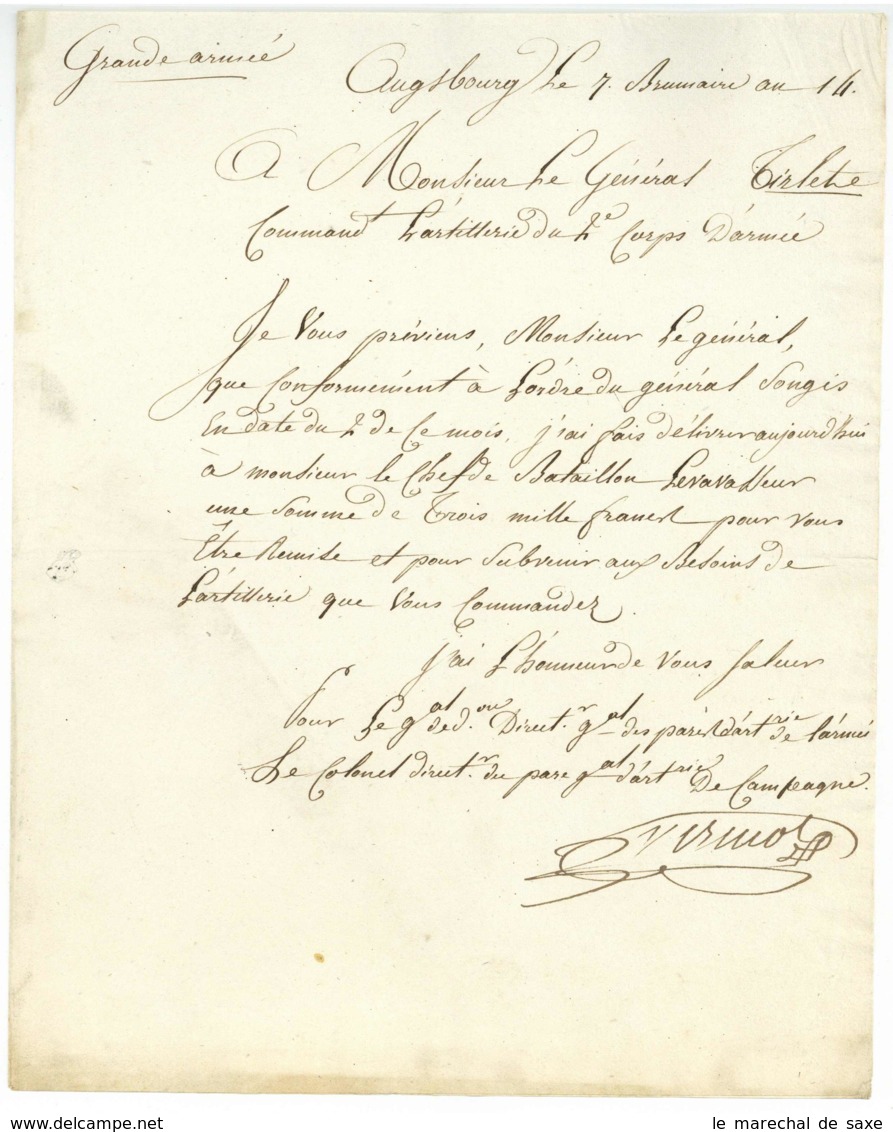 Grande armée
Augsbourg Le 7. Brumaire an 14.
A Monsieur Le Général Tirlete
Command.t L'artillerie du 2.e Corps D'armée
Je Vous préviens, Monsieur Le général,
que Conformément à L'ordre du général Songis
En date du 2 de Ce mois, j'ai fais délivrer aujourd'hui
à monsieur le Chef de Bataillon Levavasseur
une Somme de Trois mille francs pour vous
Être Remise et pour Subvenir aux Besoins de
L'artillerie que Vous Commandez.
j'ai L'honneur de Vous Saluer
Pour Le g.al de d.on Direct.r g.al des parcs d'art.rie de l'armée
Le Colonel direct.r du parc g.al d'art.rie De Campagne.
Vermot
le marechal de saxe